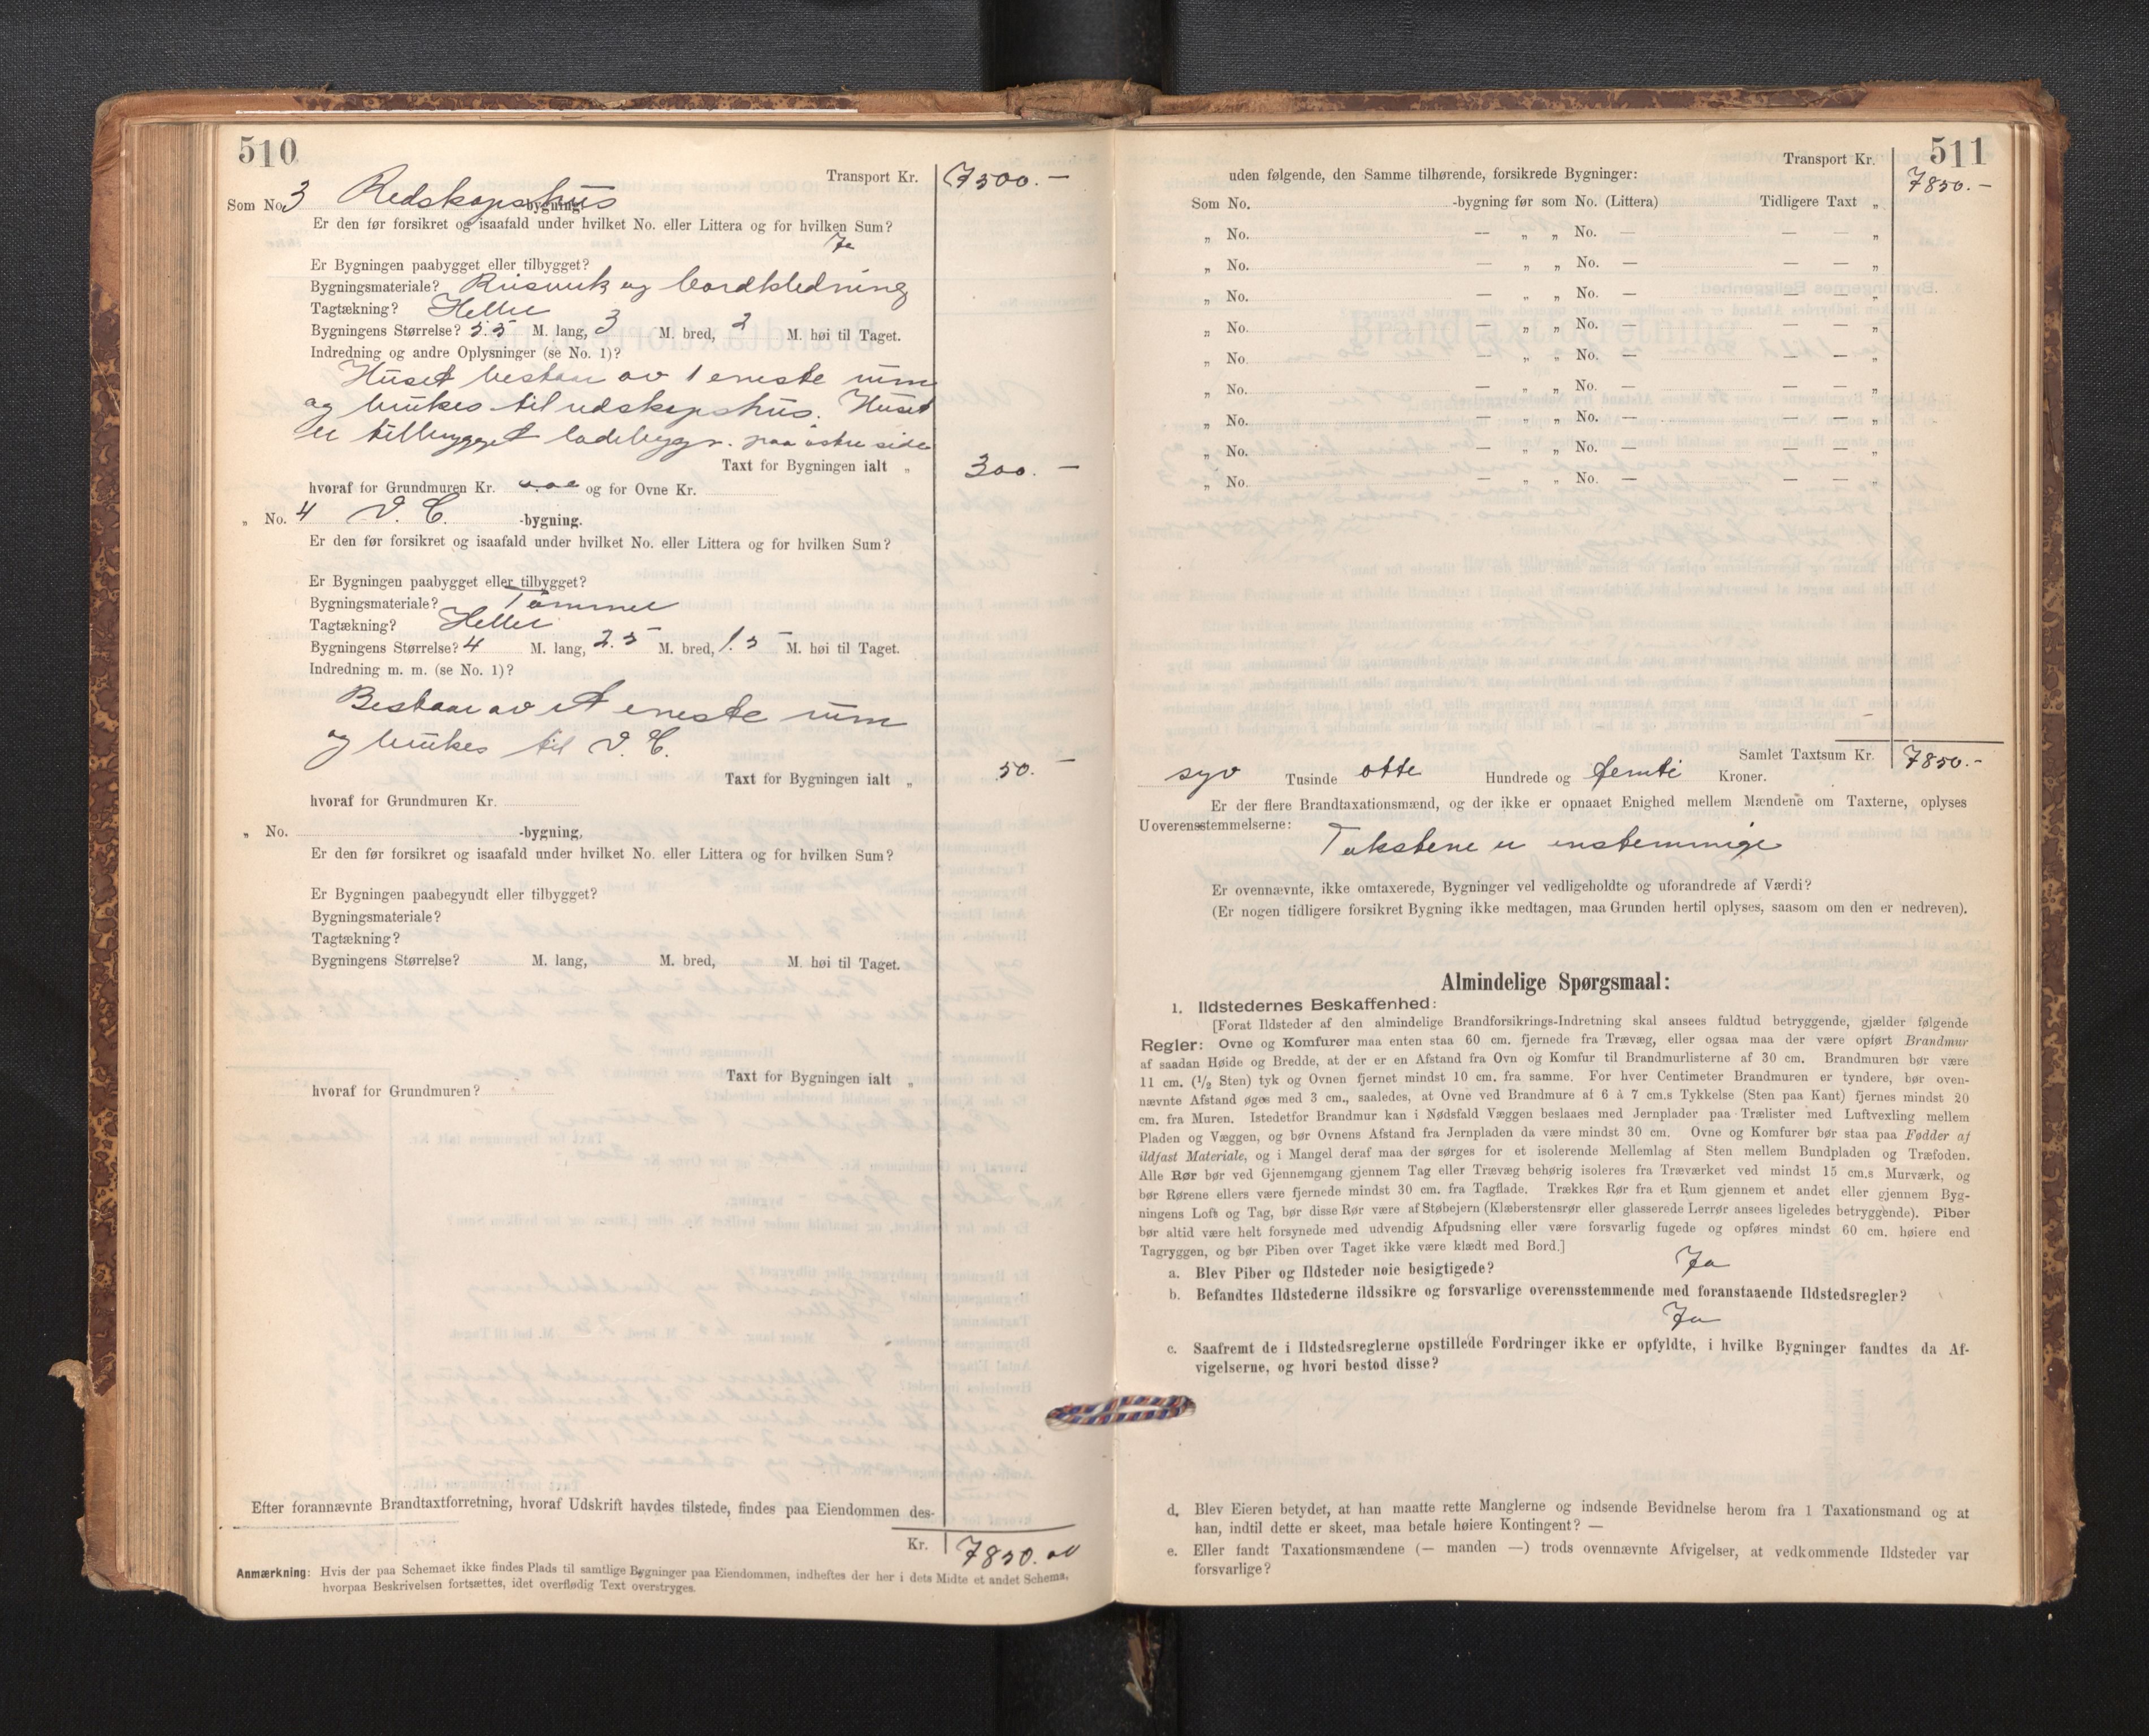 510
Transport Kr. 7500.-
Som No. 3 Redskapshus -bygning.
Er den før forsikret og isaafald under hvilket No. eller Littera og for hvilken Sum?
Ja
Er Bygningen paabygget eller tilbygget?
Bygningsmateriale? og bordklædning
Tagtækning? Heller
Bygningens Størrelse? 5.5 M. lang, 3 M. bred, 2 M. høi til Taget.
Indredning og andre Oplysninger (se No. 1)?
Huset bestaar av 1 eneste rum
og brukes til redskapshus. Huset
er tilbygget ladebygn. paa østre side
Taxt for Bygningen ialt „ 300. -
hvoraf for Grundmuren Kr. og for Ovne Kr.
„ No. 4 V. C. -bygning.
Er den før forsikret og isaafald under hvilket No. eller Littera og for hvilken Sum?
Er Bygningen paabygget eller tilbygget?
Bygningsmateriale? Tømmer
Tagtækning? Heller
Bygningens Størrelse? 4 M. lang, 2.5 M. bred, 1.5 M. høi til Taget.
Indredning m. m. (se No. 1)?
Bestaar av et eneste rum
og brukes til V. C.
Taxt for Bygningen ialt „ 50. -
hvoraf for Grundmuren Kr.
„ No. -bygning,
Er den før forsikret og isaafald under hvilket No. eller Littera og for hvilken Sum?
Er Bygningen paabegyndt eller tilbygget?
Bygningsmateriale?
Tagtækning?
Bygningens Størrelse? M. lang, M. bred, M. høi til Taget.
Taxt for Bygningen ialt „
hvoraf for Grundmuren?
Efter forannævnte Brandtaxtforretning, hvoraf Udskrift havdes tilstede, findes paa Eiendommen des-
Kr. 7850.00
Anmærkning: Hvis der paa Schemaet ikke findes Plads til samtlige Bygninger paa Eiendommen, indheftes der her i dets Midte et andet Schema,
hvorpaa Beskrivelsen fortsættes, idet overflødig Text overstryges.
511
Transport Kr. 7850.-
uden følgende, den Samme tilhørende, forsikrede Bygninger:
Som No. -bygning før som No. (Littera) Tidligere Taxt „
„ No. — „ „ No. — — — „
„ No. — „ „ No. — — — „
„ No. — „ „ No. — — — „
„ No. — „ „ No. — — — „
„ No. — „ „ No. — — — „
„ No. — „ „ No. — — — „
„ No. — „ „ No. — — — „
„ No. — „ „ No. — — — „
„ No. — „ „ No. — — — „
Samlet Taxtsum Kr. 7850.-
syv Tusinde otte Hundrede og femti Kroner.
Er der flere Brandtaxationsmænd, og der ikke er opnaaet Enighed mellem Mændene om Taxterne, oplyses
Uoverensstemmelserne:
Takstene er enstemmige
Er ovennævnte, ikke omtaxerede, Bygninger vel vedligeholdte og uforandrede af Værdi?
(Er nogen tidligere forsikret Bygning ikke medtagen, maa Grunden hertil oplyses, saasom om den er nedreven).
Almindelige Spørgsmaal:
1. Ildstedernes Beskaffenhed:
[Forat Ildsteder af den almindelige Brandforsikrings-Indretning skal ansees fuldtud betryggende, gjælder følgende
Regler: Ovne og Komfurer maa enten staa 60 cm. fjernede fra Trævæg, eller ogsaa maa der være opført Brandmur
af saadan Høide og Bredde, at der er en Afstand fra Ovn og Komfur til Brandmurlisterne af 30 cm. Brandmuren bør være
11 cm. (1/2 Sten) tyk og Ovnen fjernet mindst 10 cm. fra samme. For hver Centimeter Brandmuren er tyndere, bør oven-
nævnte Afstand øges med 3 cm., saaledes, at Ovne ved Brandmure af 6 à 7 cm.s Tykkelse (Sten paa Kant) fjernes mindst 20
cm. fra Muren. Istedetfor Brandmur kan i Nødsfald Væggen beslaaes med Jernplader paa Trælister med Luftvexling mellem
Pladen og Væggen, og bør Ovnens Afstand fra Jernpladen da være mindst 30 cm. Ovne og Komfurer bør staa paa Fødder af
ildfast Materiale, og i Mangel deraf maa der sørges for et isolerende Mellemlag af Sten mellem Bundpladen og Træfoden.
Alle Rør bør ved Gjennemgang gjennem Tag eller Trævæg behørig isoleres fra Træværket ved mindst 15 cm.s Murværk, og
bør Rørene ellers være fjernede mindst 30 cm. fra Tagflade. Trækkes Rør fra et Rum gjennem et andet eller gjennem Byg-
ningens Loft og Tag, bør disse Rør være af Støbejern (Klæberstensrør eller glasserede Lerrør ansees ligeledes betryggende). Piber
bør altid være helt forsynede med udvendig Afpudsning eller være forsvarlig fugede og opføres mindst 60 cm. høiere end
Tagryggen, og bør Piben over Taget ikke være klædt med Bord.]
a. Blev Piber og Ildsteder nøie besigtigede? Ja
b. Befandtes Ildstederne ildssikre og forsvarlige overensstemmende med foranstaaende Ildstedsregler?
Ja
c. Saafremt de i Ildstedsreglerne opstillede Fordringer ikke er opfyldte, i hvilke Bygninger fandtes da Af-
vigelserne, og hvori bestod disse?
d. Blev Eieren betydet, at han maatte rette Manglerne og indsende Bevidnelse herom fra 1 Taxationsmand og at
han, indtil dette er skeet, maa betale høiere Kontingent? —
e. Eller fandt Taxationsmændene (— manden —) trods ovennævnte Afvigelser, at vedkommende Ildsteder var
forsvarlige?